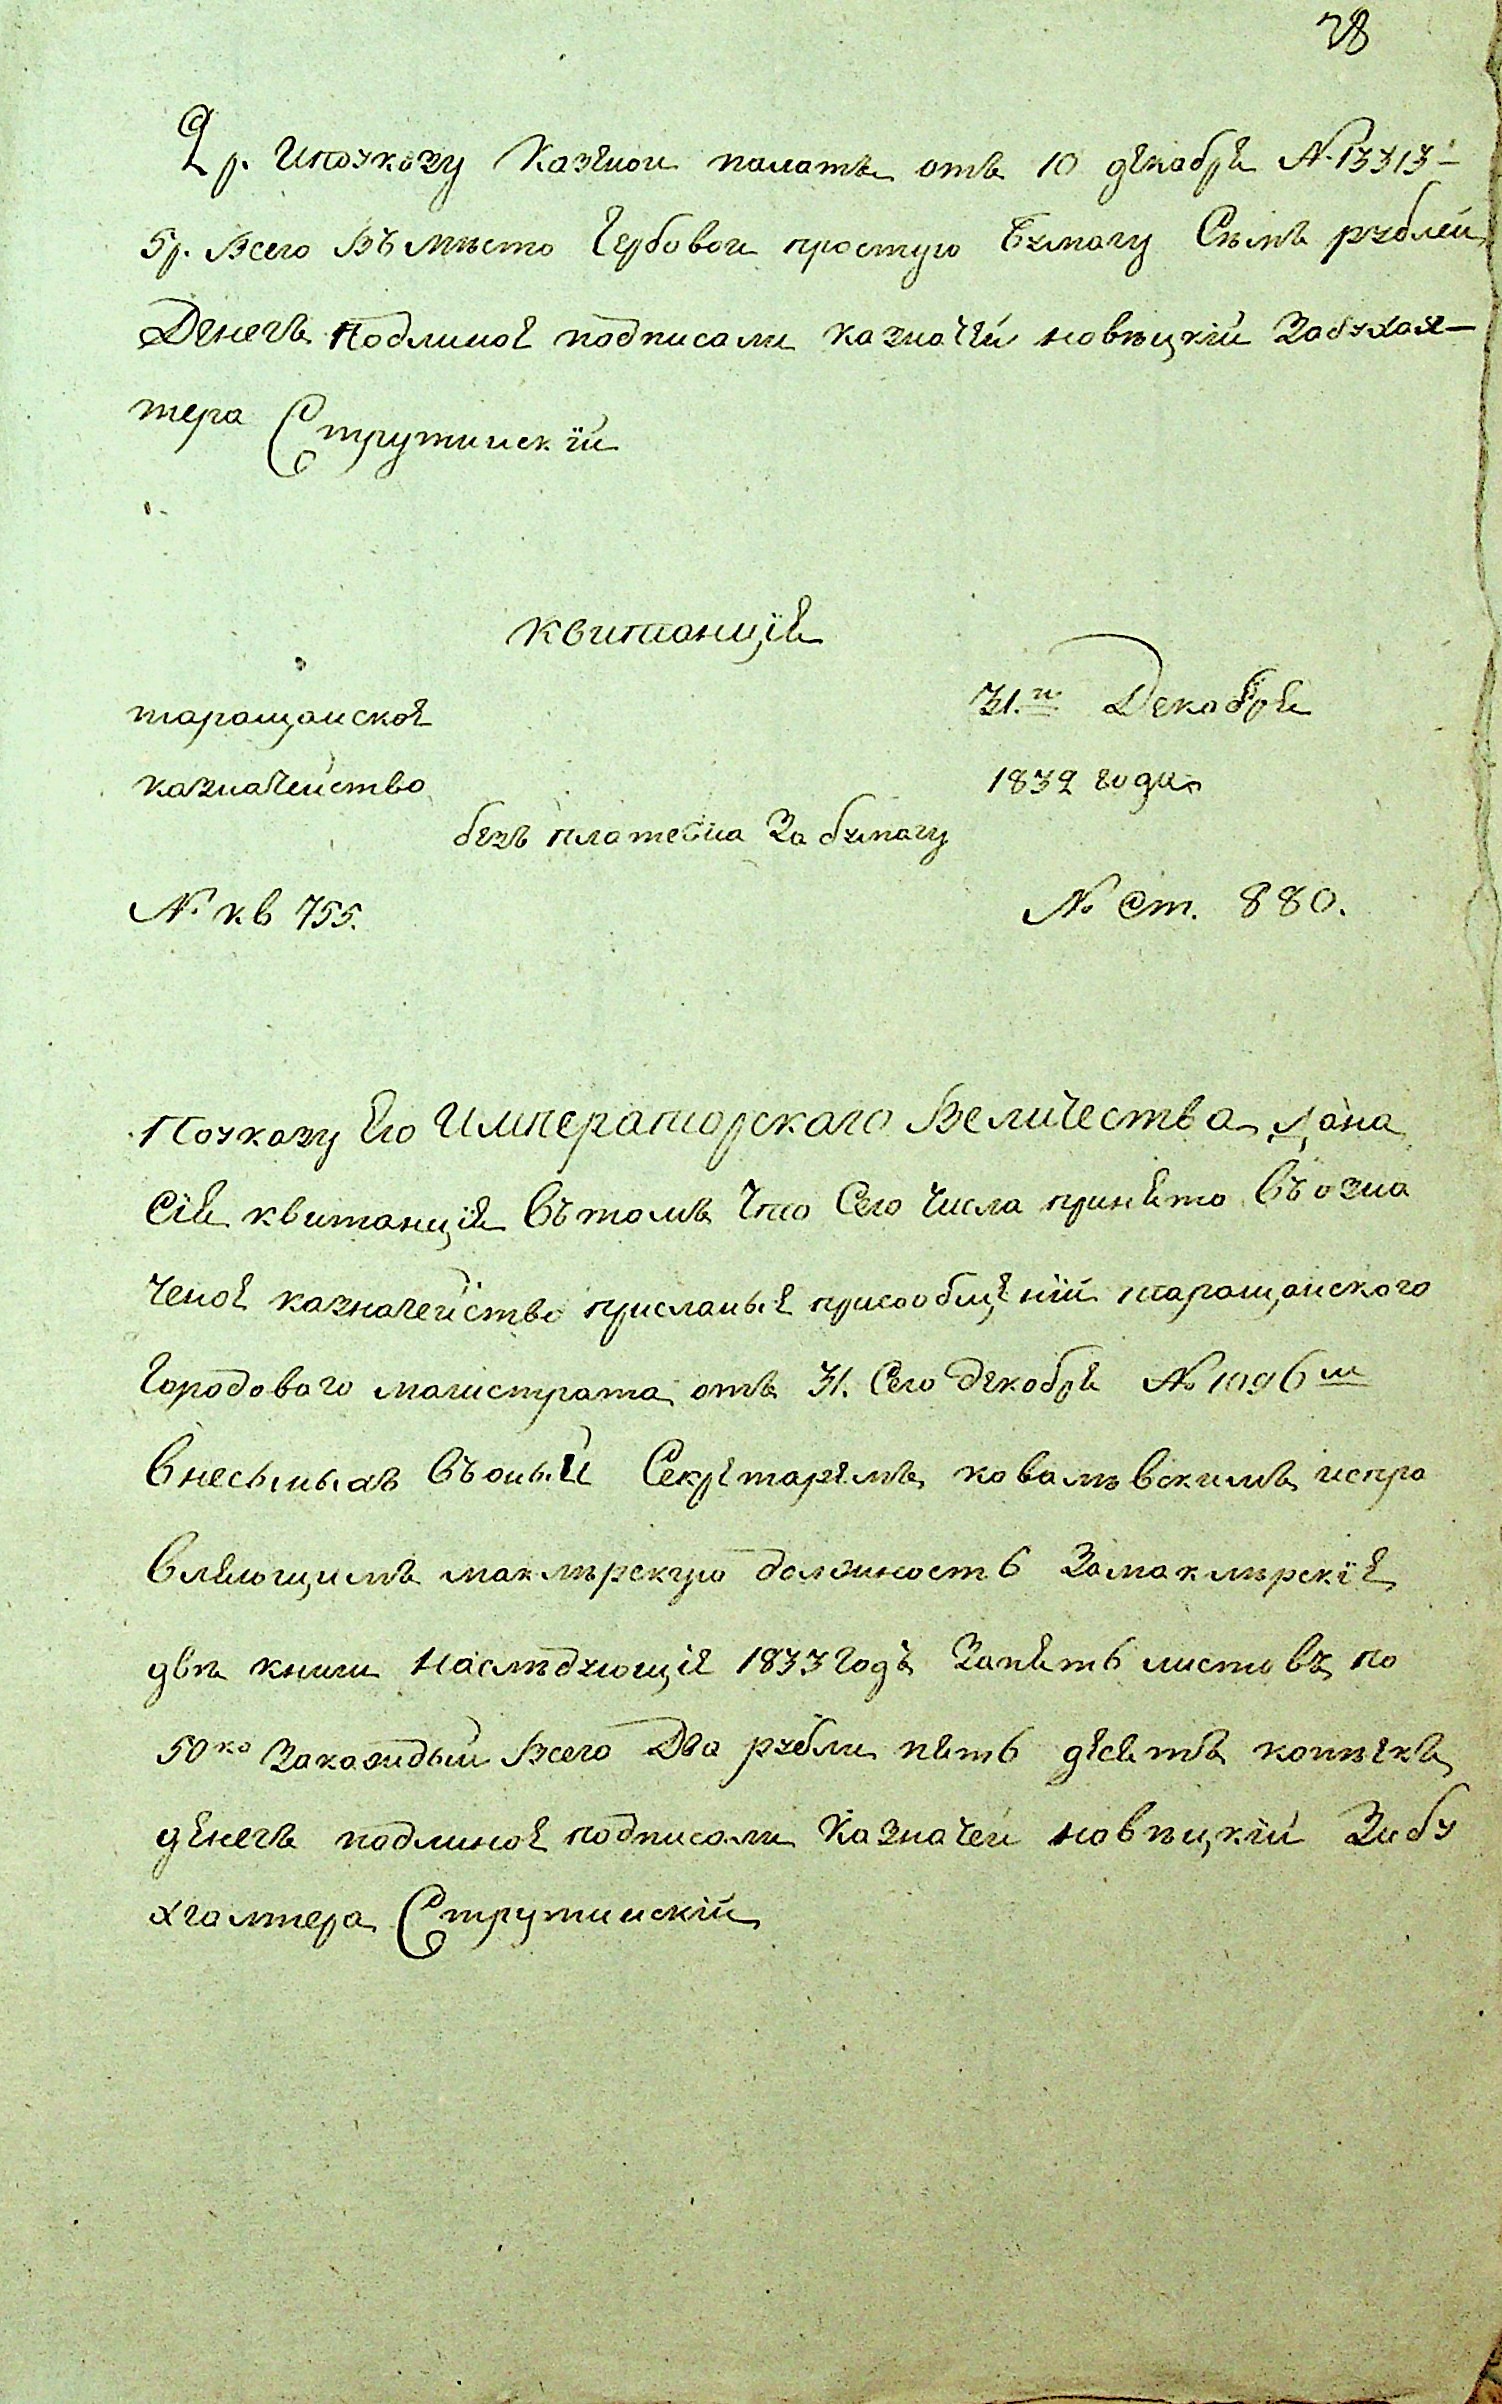 28
2 р. Ипоуказу Казеной палаты отъ 10 декабря №. 13313
5 р. Всего Въ место Гербовой простую Бумагу Семъ рублей
Денегъ Подлиное подписали казначей новецкій Забухгал-
тера Струтинскій
Квитанція
таращанское
31.го Декабря
казначейство
1832 года
безъ платежна За бумагу
№. кв 755.
№ Ст. 880.
Поуказу Его Императорскаго Величества Дана
Сія квитанція Въ томъ что Сего числа принято Въ озна
ченое казначейство присланые присообщеніи таращанского
Городоваго магистрата отъ 31. Сего декабря № 1096м
Внесыныхъ Въоный Секретаремъ ковалѣвскимъ испра
Вляющимъ маклѣрскую должность Замаклѣрскіе
двѣ книги Наслѣдующіе 1833 годъ Запять листовъ по
50ко Закаждый Всего Два рубли пять десятъ копѣекъ
денегъ подлиное подписали Казначей новецкій Забу
хгалтера Струтинскій